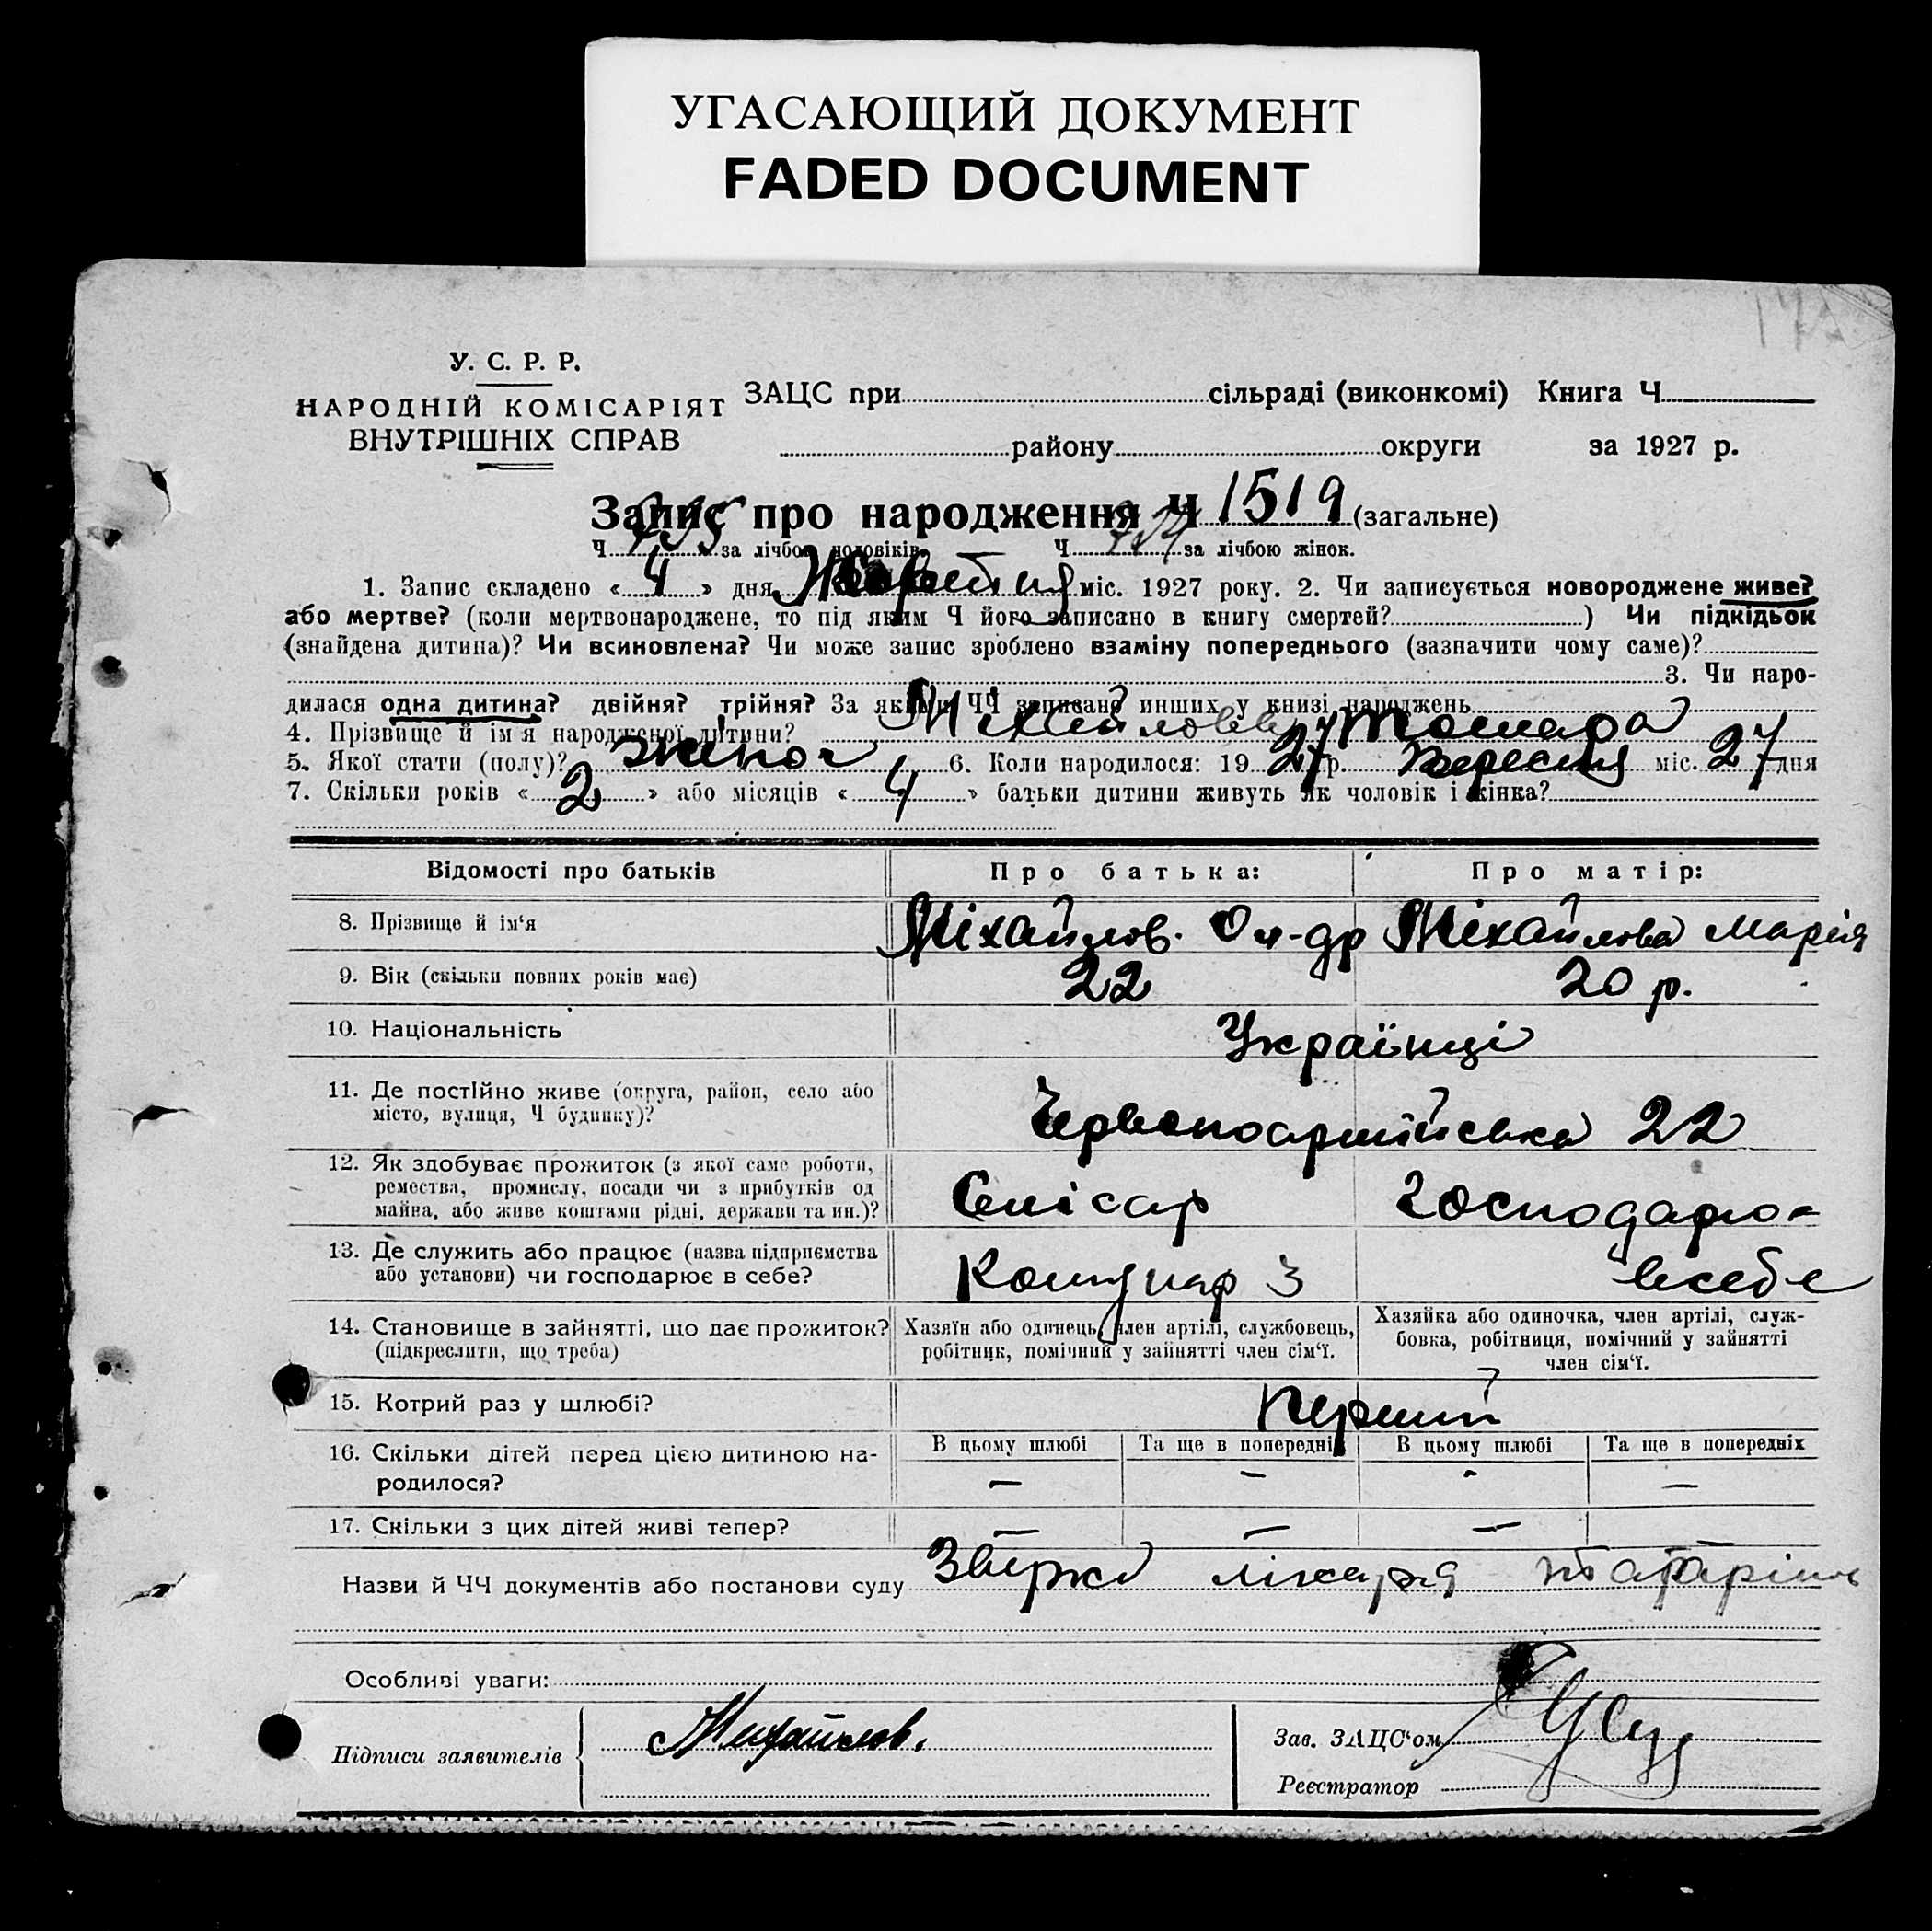 УГАСАЮЩИЙ ДОКУМЕНТ
FADED DOCUMENT
У. С. Р. Р.
НАРОДНІЙ КОМІСАРІЯТ
ВНУТРІШНІХ СПРАВ
ЗАЦС при сільраді (виконкомі) Книга Ч
району округи за 1927 р.
Запис про народження Ч 1519 (загальне)
Ч за лічбою чоловіків Ч за лічбою жінок.
1. Запис складено « 4 » дня Жовтня міс. 1927 року. 2. Чи записується новороджене живе?
або мертве? (коли мертвонароджене, то під яким Ч його записано в книгу смертей? ) Чи підкідьок
(знайдена дитина)? Чи всиновлена? Чи може запис зроблено взаміну попереднього (зазначити чому саме)?
3. Чи наро-
дилася одна дитина? двійня? трійня? За якими ЧЧ записано инших у книзі народжень
4. Прізвище й ім'я народженої дитини? Міхайлова Тамара
5. Якої стати (полу)? жіноч 6. Коли народилося: 19 27 р. Вересня міс. 27 дня
7. Скільки років « 2 » або місяців « 4 » батьки дитини живуть як чоловік і жінка?
Відомості про батьків Про батька: Про матір:
8. Прізвище й ім'я Міхайлов. Ол-др Міхайлова Марія
9. Вік (скільки повних років має) 22 20 р.
10. Національність Українці
11. Де постійно живе (округа, район, село або
місто, вулиця, Ч будинку)? Червоноармійська 22
12. Як здобуває прожиток (з якої саме роботи,
ремества, промислу, посади чи з прибутків од
майна, або живе коштами рідні, держави та ин.)? Слісар господарює
13. Де служить або працює (назва підприємства
або установи) чи господарює в себе? Комунар 3 всебе
14. Становище в зайнятті, що дає прожиток?
(підкреслити, що треба)
Хазяїн або одинець, член артілі, службовець,
робітник, помічний у зайнятті член сім'ї.
Хазяйка або одиночка, член артілі, служ-
бовка, робітниця, помічний у зайнятті
член сім'ї.
15. Котрий раз у шлюбі? перший
16. Скільки дітей перед цією дитиною на-
родилося?
В цьому шлюбі Та ще в попередніх В цьому шлюбі Та ще в попередніх
— — - —
17. Скільки з цих дітей живі тепер? — — —
Назви й ЧЧ документів або постанови суду лікаря
Особливі уваги:
Підписи заявителів Михайлов.
Зав. ЗАЦС'ом
Реєстратор